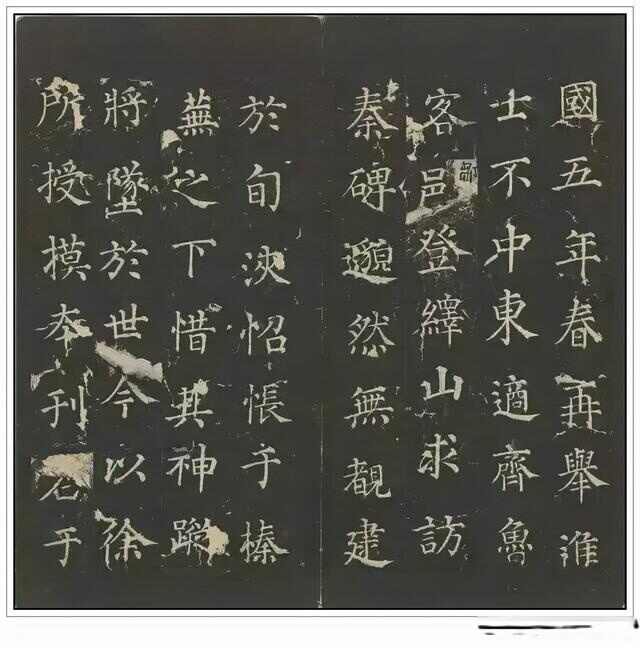 國五年春再舉進
士不中東適齊魯
客鄒邑登繹山求訪
秦碑邈然無覩逮
於旬浹怊悵于榛
蕪之下惜其神蹤
將墜於世今以徐
所授摸夲刊石于